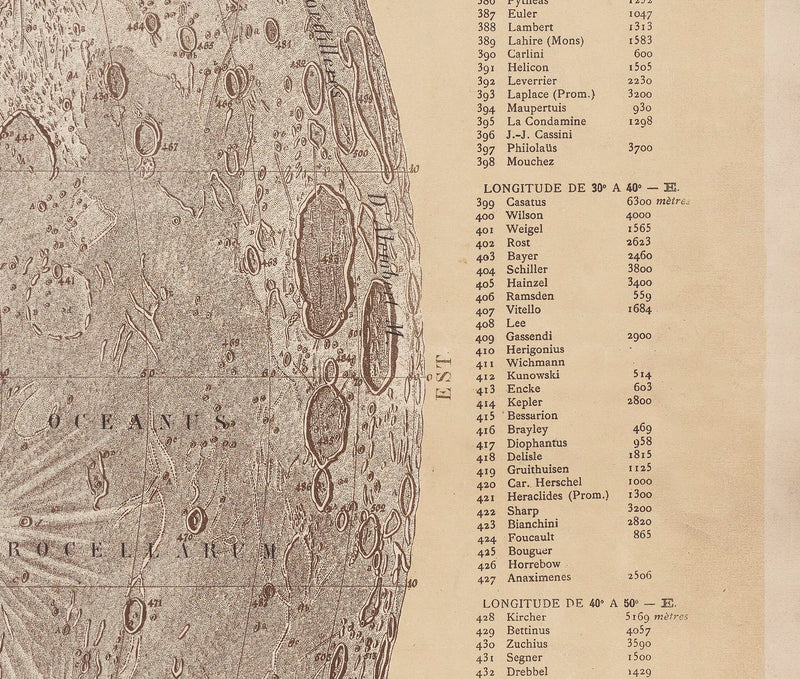 386 Pytheas 1292
387 Euler 1047
388 Lambert 1313
389 Lahire (Mons) 1583
390 Carlini 600
391 Helicon 1505
392 Leverrier 2230
393 Laplace (Prom.) 3200
394 Maupertuis 930
395 La Condamine 1298
396 J.-J. Cassini
397 Philolaüs 3700
398 Mouchez
LONGITUDE DE 30° A 40° — E.
399 Casatus 6300 mètres
400 Wilson 4000
401 Weigel 1565
402 Rost 2623
403 Bayer 2460
404 Schiller 3800
405 Hainzel 3400
406 Ramsden 559
407 Vitello 1684
408 Lee
409 Gassendi 2900
410 Herigonius
411 Wichmann
412 Kunowski 514
413 Encke 603
414 Kepler 2800
415 Bessarion
416 Brayley 469
417 Diophantus 958
418 Delisle 1815
419 Gruithuisen 1125
420 Car. Herschel 1000
421 Heraclides (Prom.) 1300
422 Sharp 3200
423 Bianchini 2820
424 Foucault 865
425 Bouguer
426 Horrebow
427 Anaximenes 2506
LONGITUDE DE 40° A 50° — E.
428 Kircher 5169 mètres
429 Bettinus 4057
430 Zuchius 3590
431 Segner 1500
432 Drebbel 1429
EST
OCEANUS
ROCELLARUM
Cordillères
D'Alembert M.
464
465
481
466
467
440
441
468
469
500
10
470
471
486
502
10